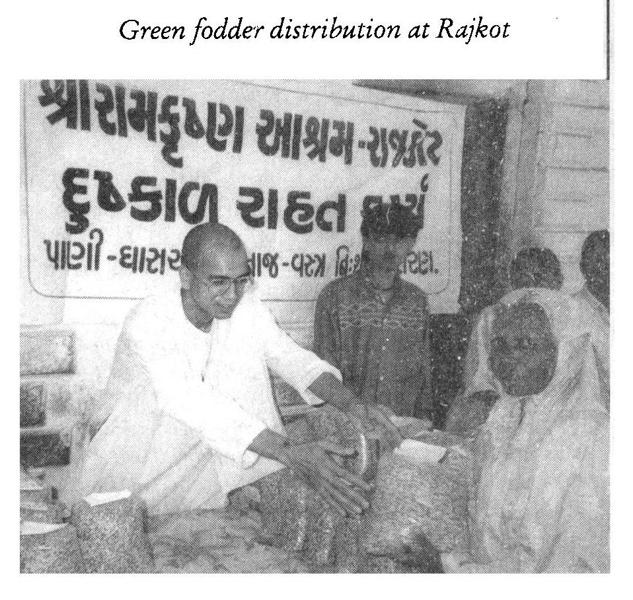 Green fodder distribution at Rajkot
શ્રીરામકૃષ્ણ આશ્રમ-રાજકોટ
દુષ્કાળ રાહત કાર્ય
પાણી-ઘાસચારો-અનાજ-વસ્ત્ર નિઃશુલ્ક વિતરણ.